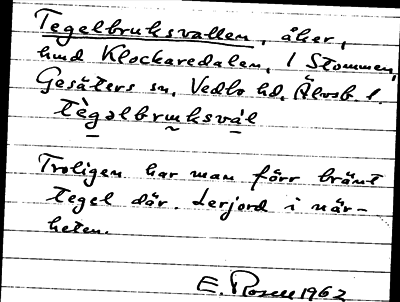 Tegelbruksvallen, åker,
hmd Klockaredalen, 1 Stommen,
Gesäters sn, Vedbo hd, Älvsb. l.
tègəlbruksvál
Troligen har man förr bränt
tegel där. Lerjord i när-
heten.
E. Rosell 1962